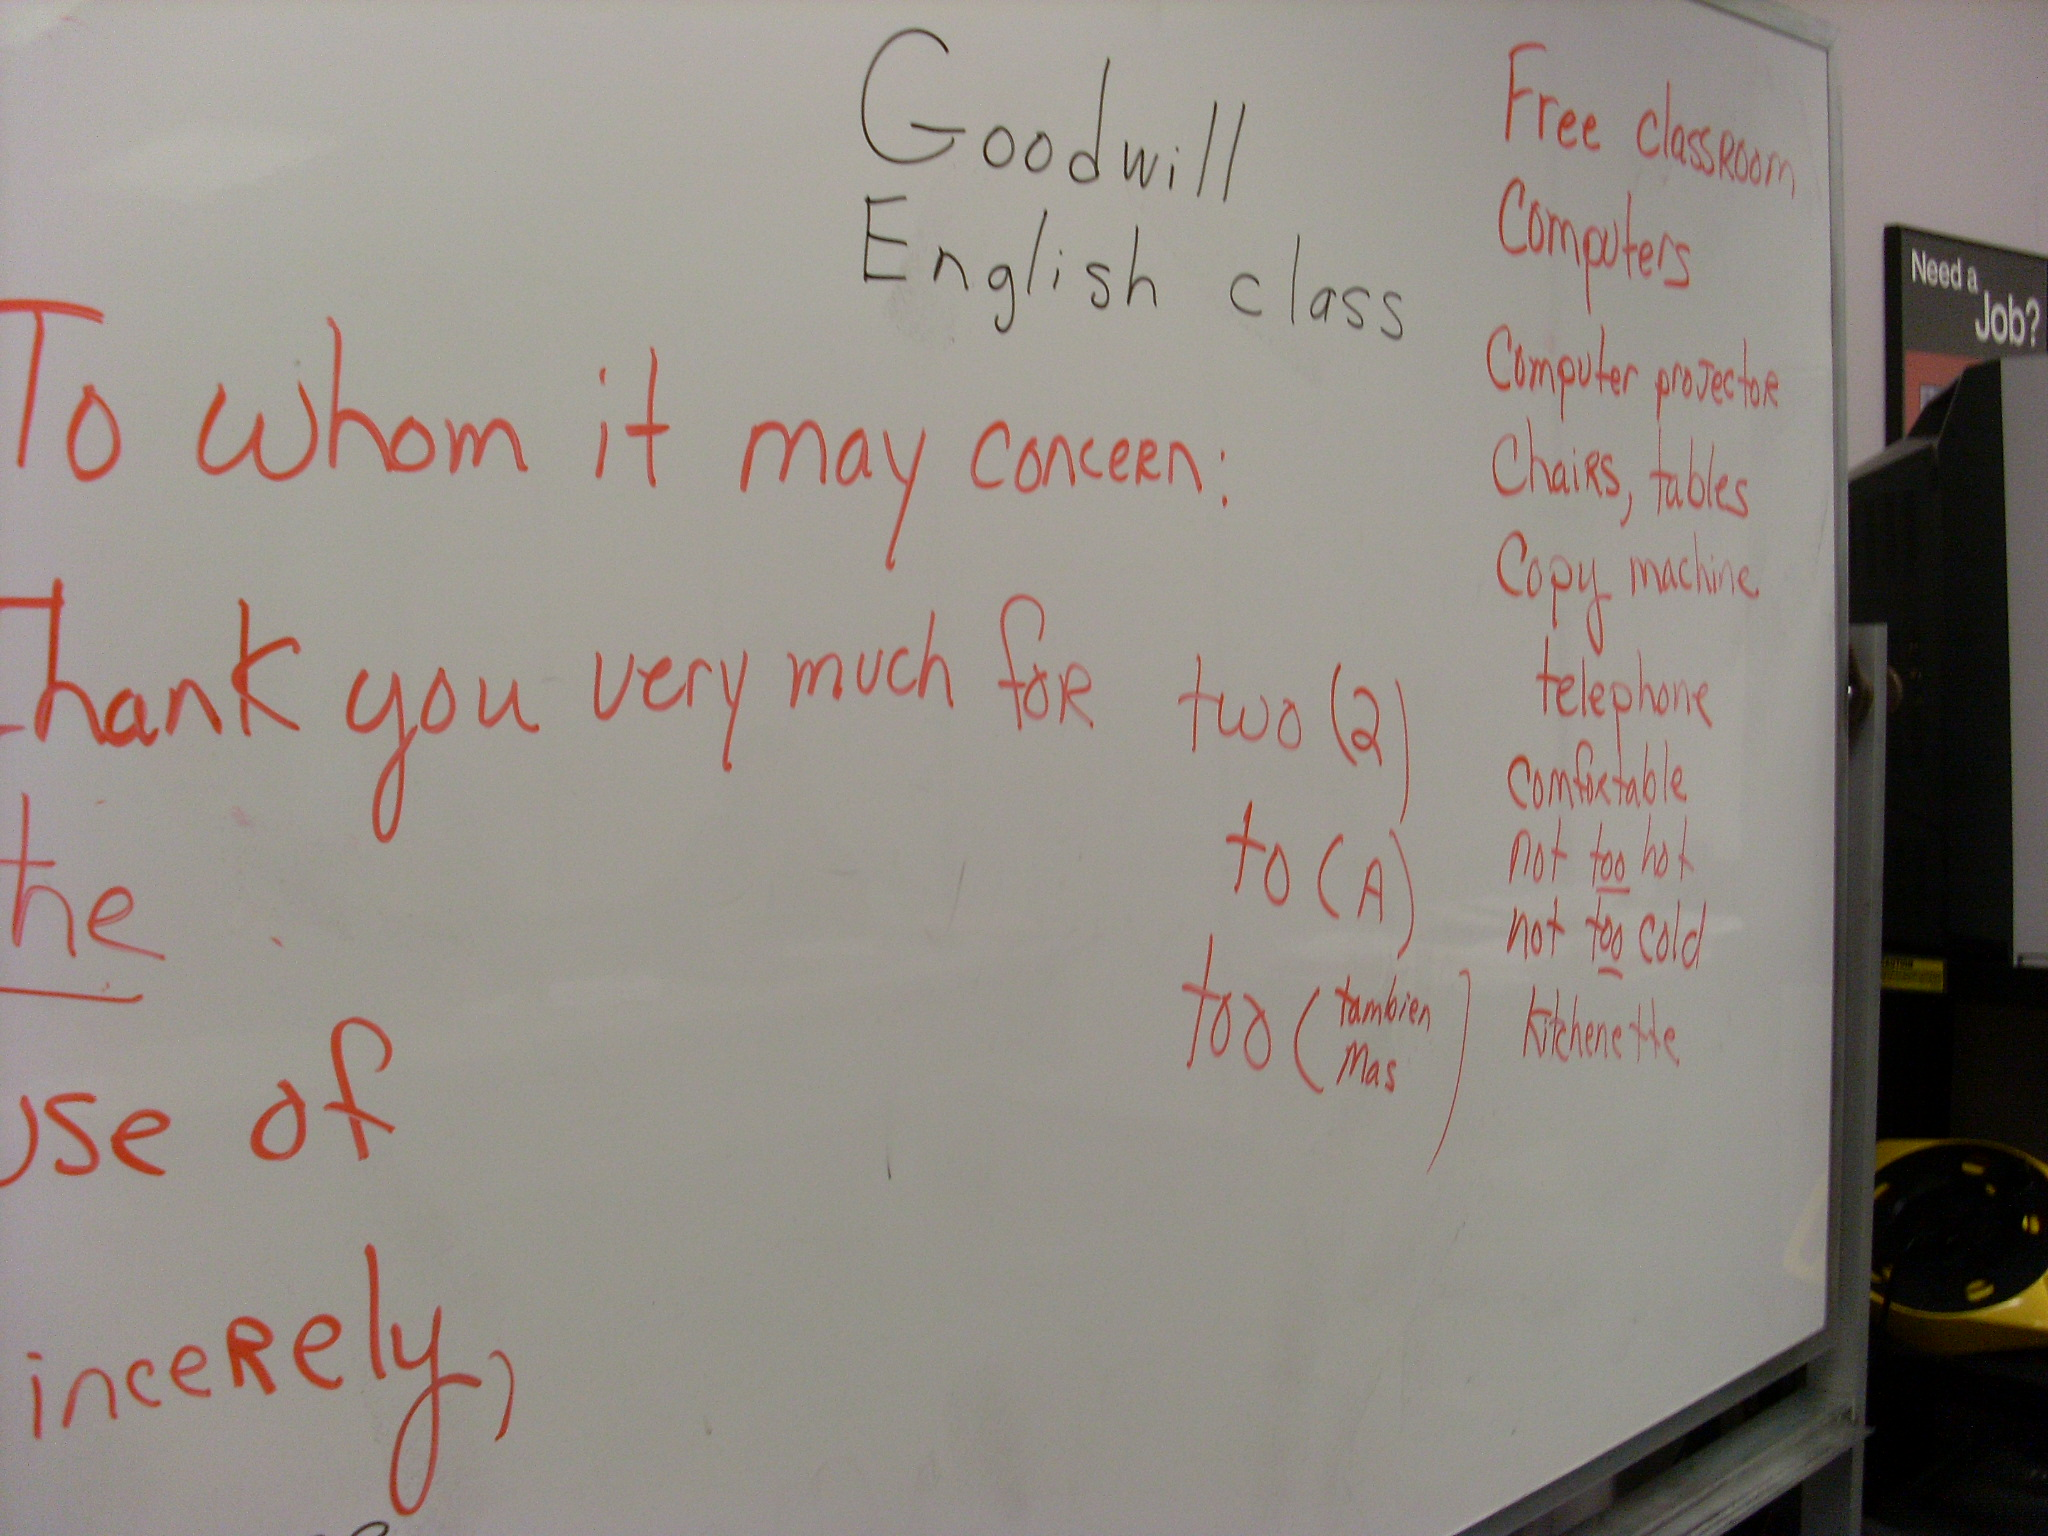 Goodwill
English class
To whom it may concern:
Thank you very much for
the
use of
incerely,
two (2)
to (A)
too (tambien
Mas)
Free classroom
Computers
Computer projector
Chairs, tables
Copy machine
telephone
comfortable
not too hot
not too cold
kitchenette
Need a
Job?